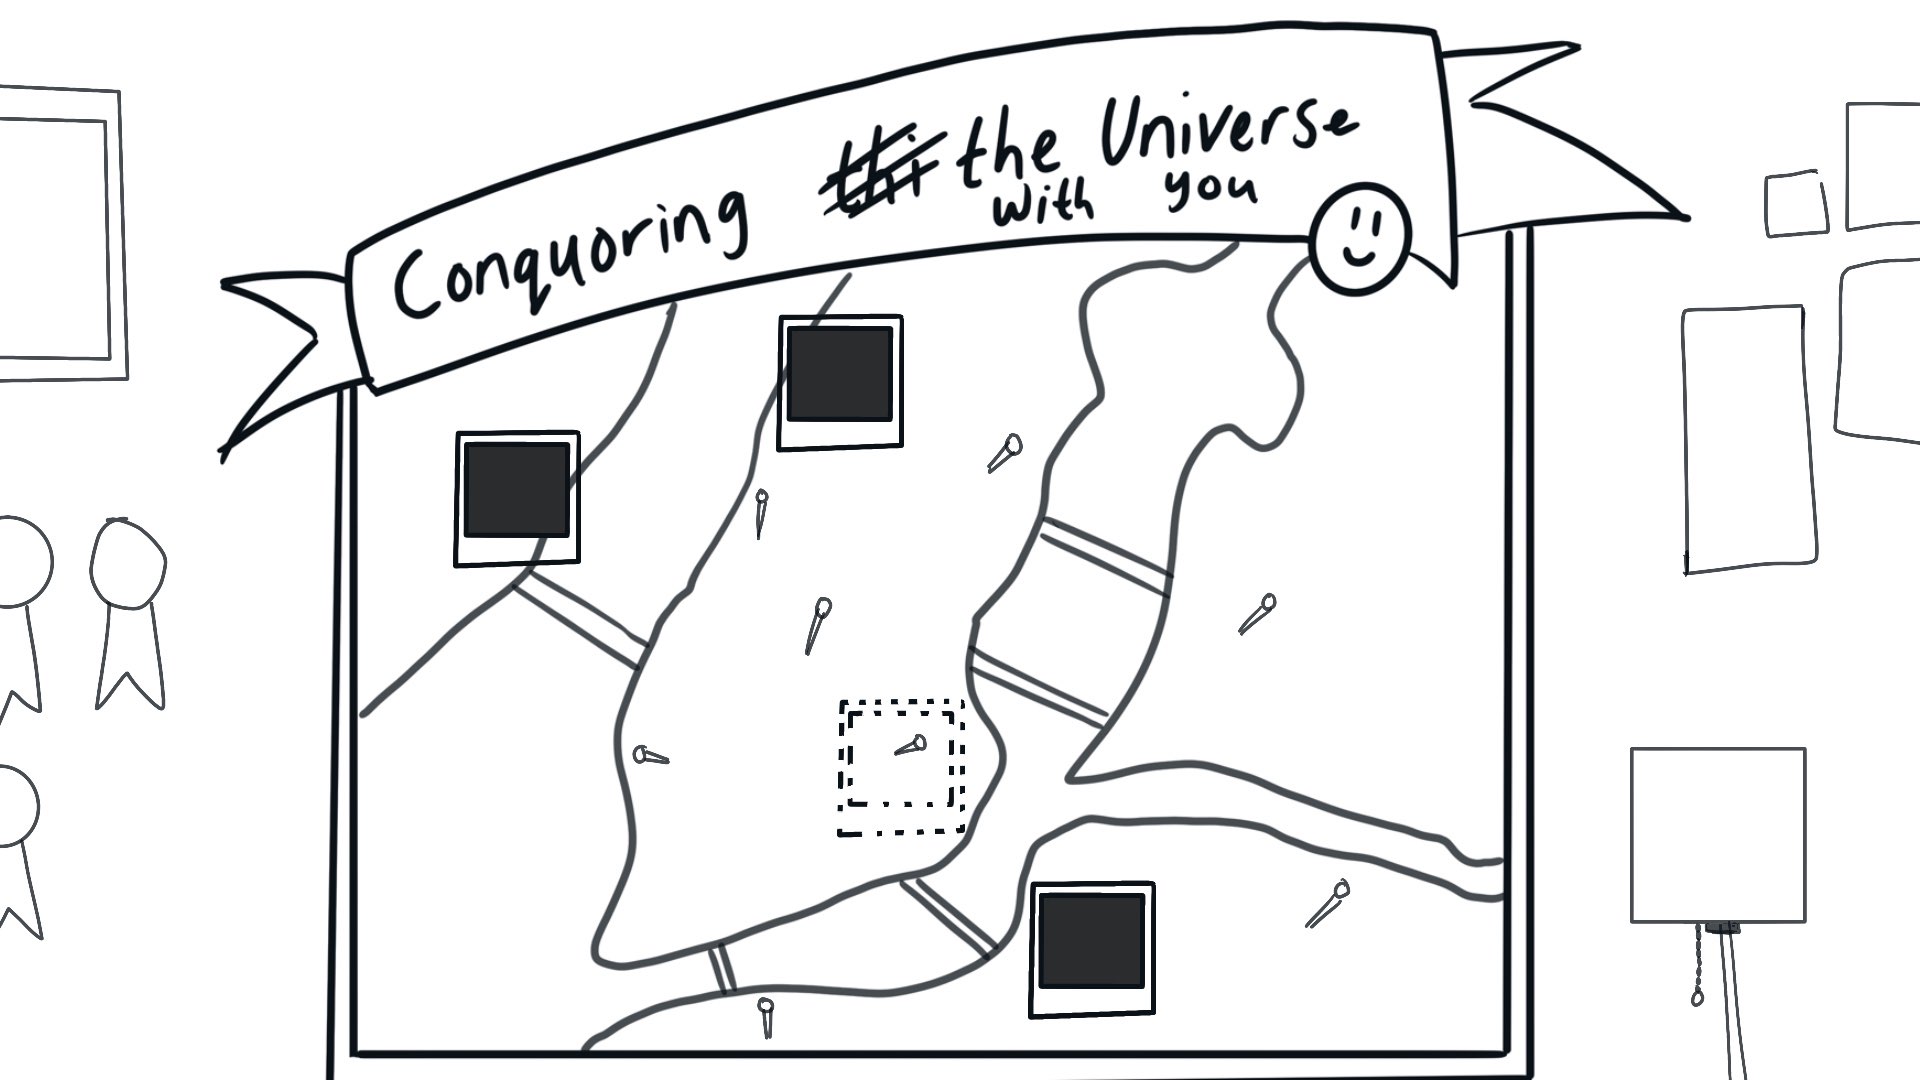 Conquoring thi the Universe
with you